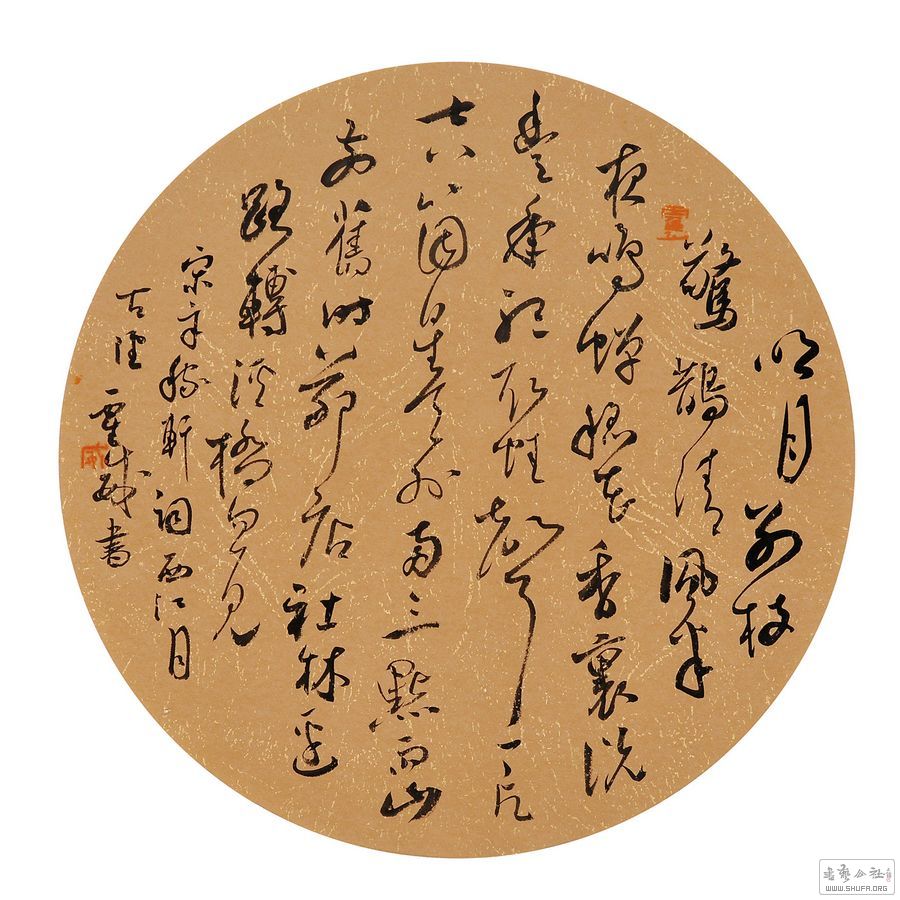 明月別枝
驚鵲清風半
夜鳴蟬稻花香裏說
豐年聽取蛙聲一片
七八個星天外兩三點雨山
前舊時茅店社林邊
路轉溪橋忽見
宋辛稼軒詞西江月
書
書藝公社
WWW.SHUFA.ORG